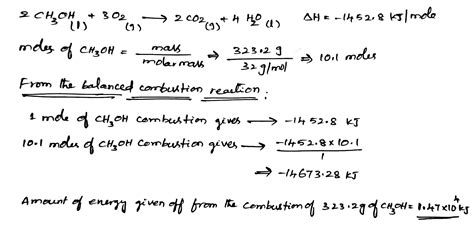 2 CH3OH(l) + 3 O2(g) → 2 CO2(g) + 4 H2O(l) ΔH = -1452.8 KJ/mole
moles of CH3OH = mass / molar mass ⇒ 323.2 g / 32 g/mol ⇒ 10.1 moles
From the balanced combustion reaction :
1 mole of CH3OH combustion gives → -1452.8 KJ
10.1 moles of CH3OH combustion gives → -1452.8 × 10.1 / 1
⇒ -14673.28 KJ
Amount of energy given off from the combustion of 323.2g of CH3OH = 1.47×10^4 KJ